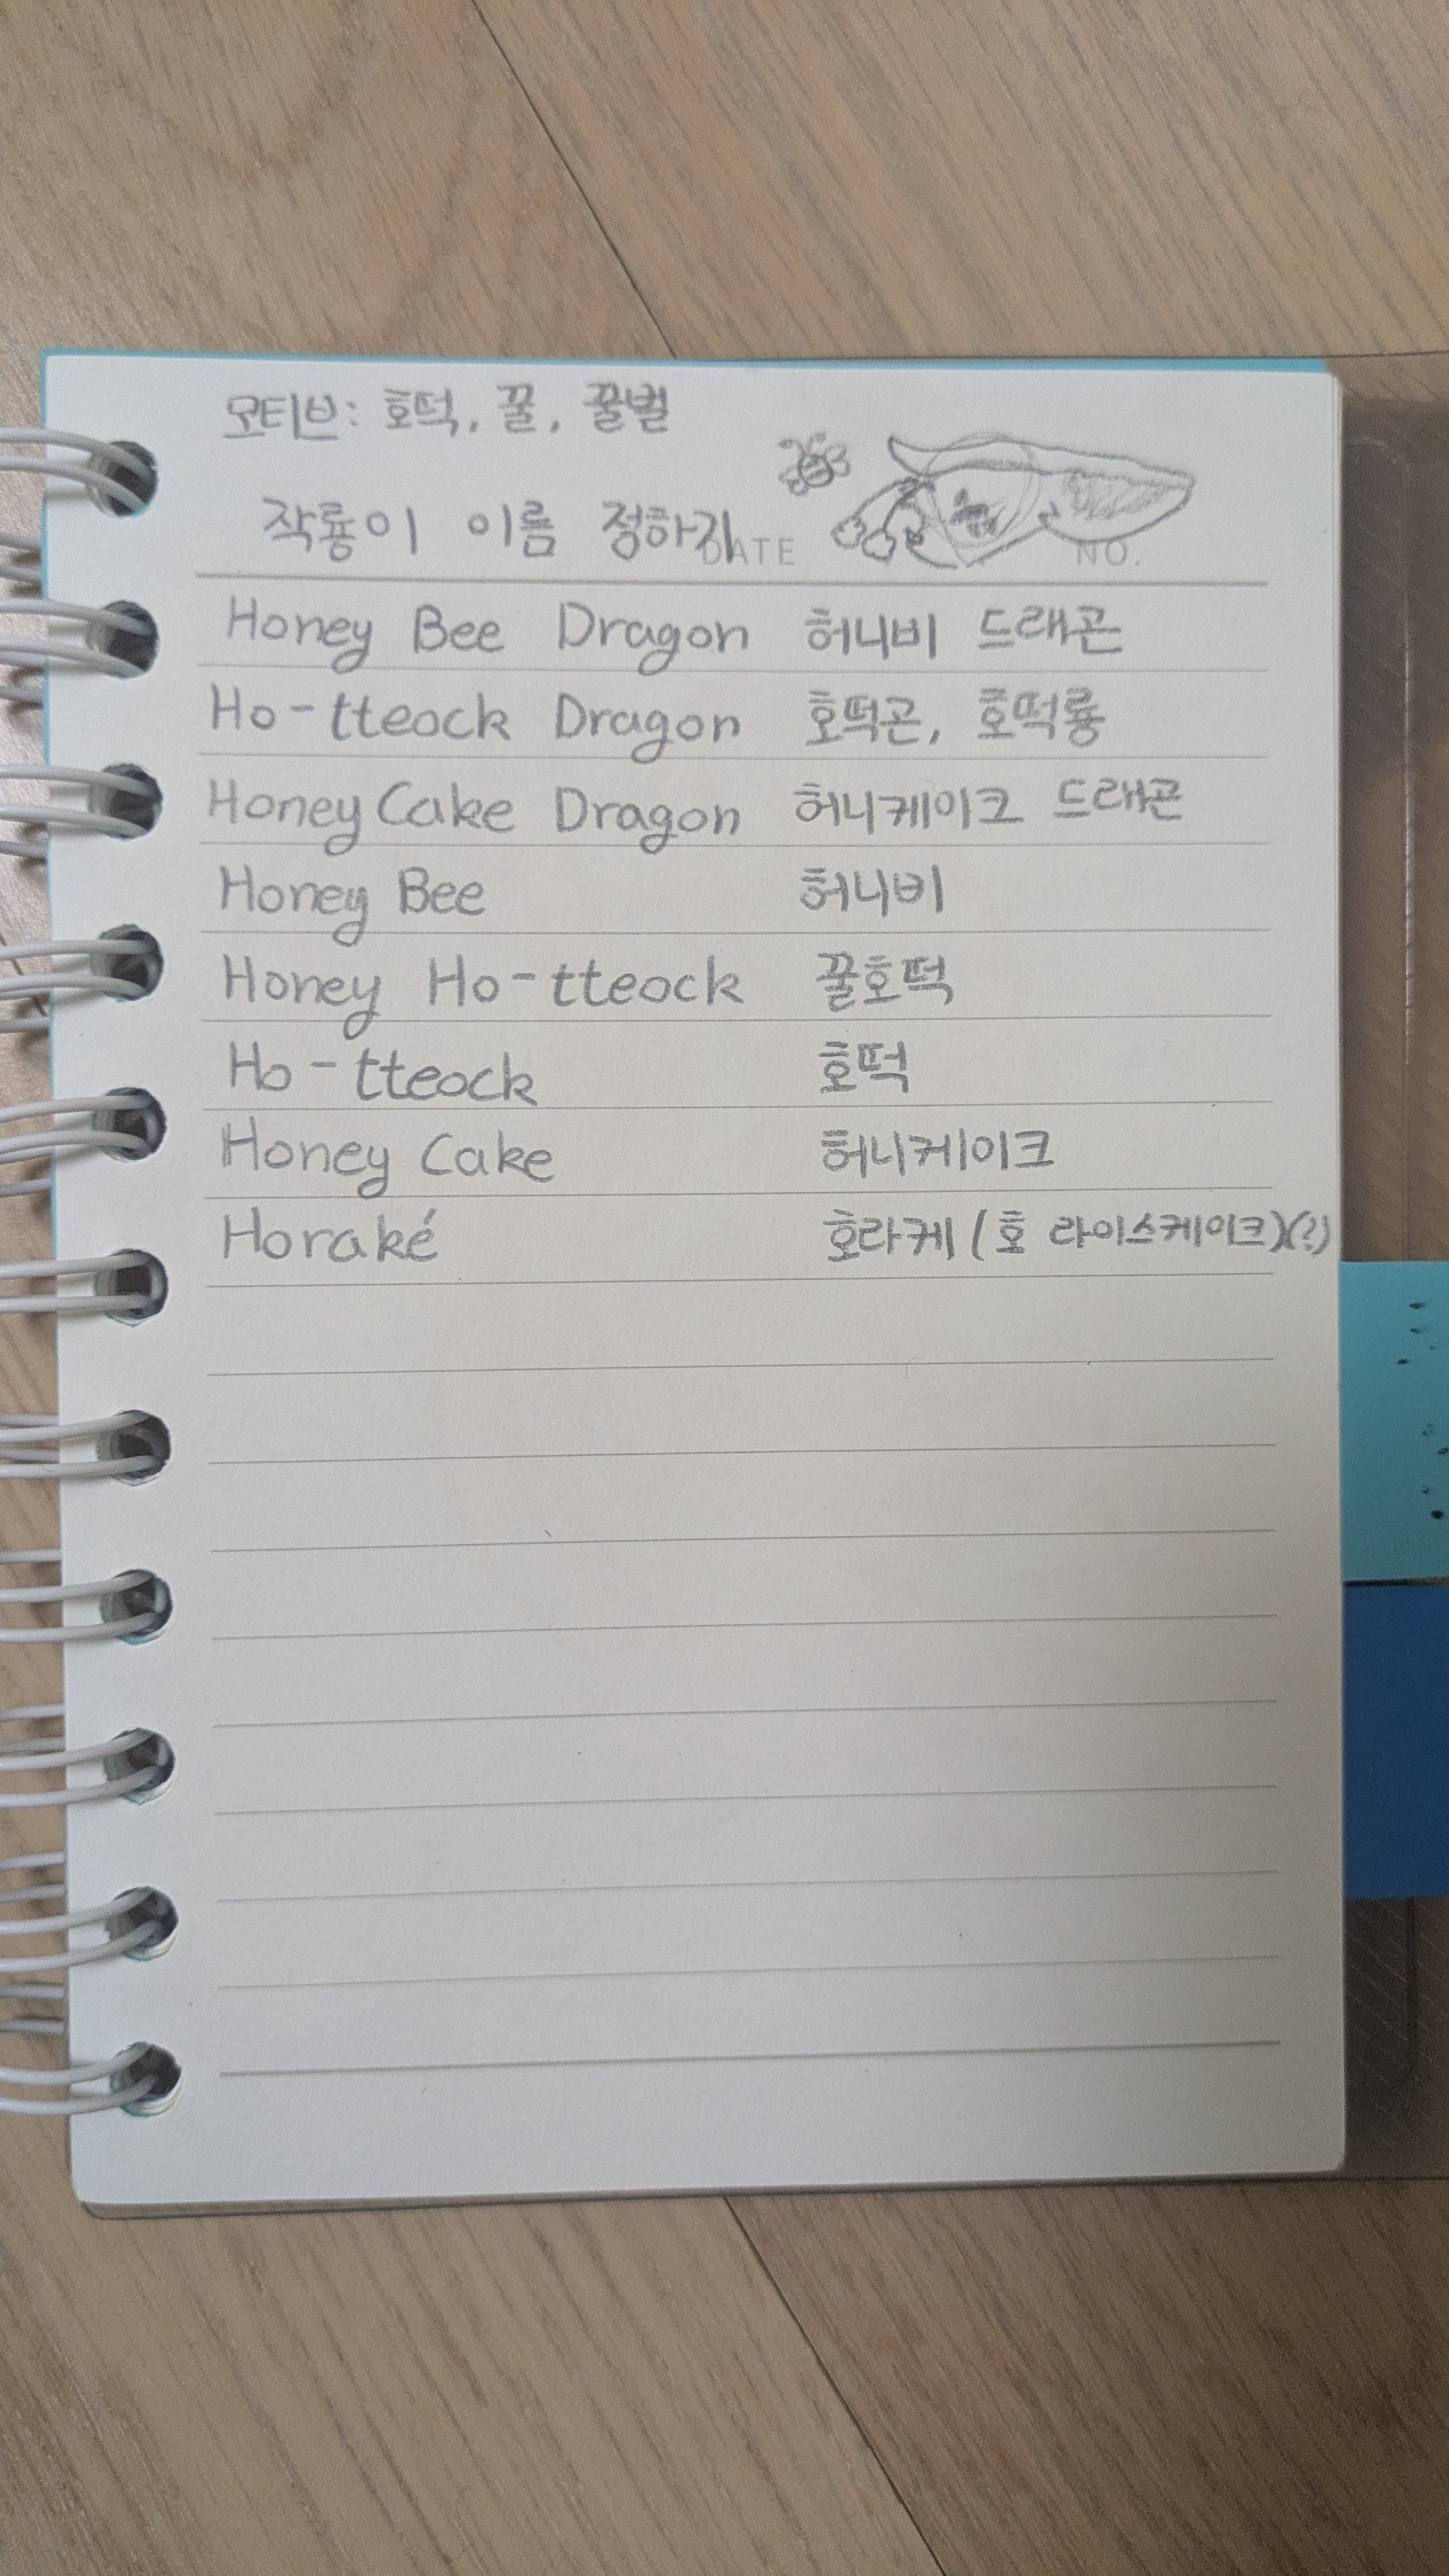 모티브: 호떡, 꿀, 꿀벌
작룡이 이름 정하기
DATE NO.
Honey Bee Dragon 허니비 드래곤
Ho-tteock Dragon 호떡곤, 호떡룡
Honey Cake Dragon 허니케이크 드래곤
Honey Bee 허니비
Honey Ho-tteock 꿀호떡
Ho-tteock 호떡
Honey Cake 허니케이크
Horaké 호라케 (호 라이스케이크)(?)